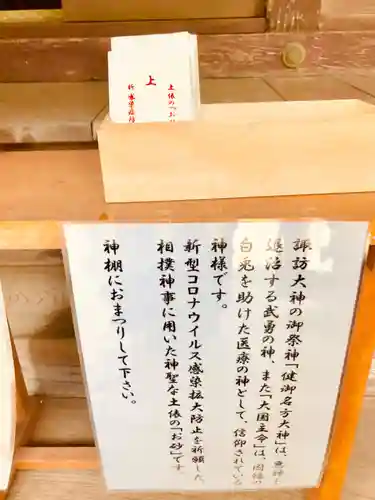 上
土俵の「お
祈 感染拡
諏訪大神の御祭神「健御名方大神」は、悪神
退治する武勇の神、また「大国主命」は、因幡
白兎を助けた医療の神として、信仰されている
神様です。
新型コロナウイルス感染拡大防止を祈願した、
相撲神事に用いた神聖な土俵の「お砂」です
神棚におまつりして下さい。